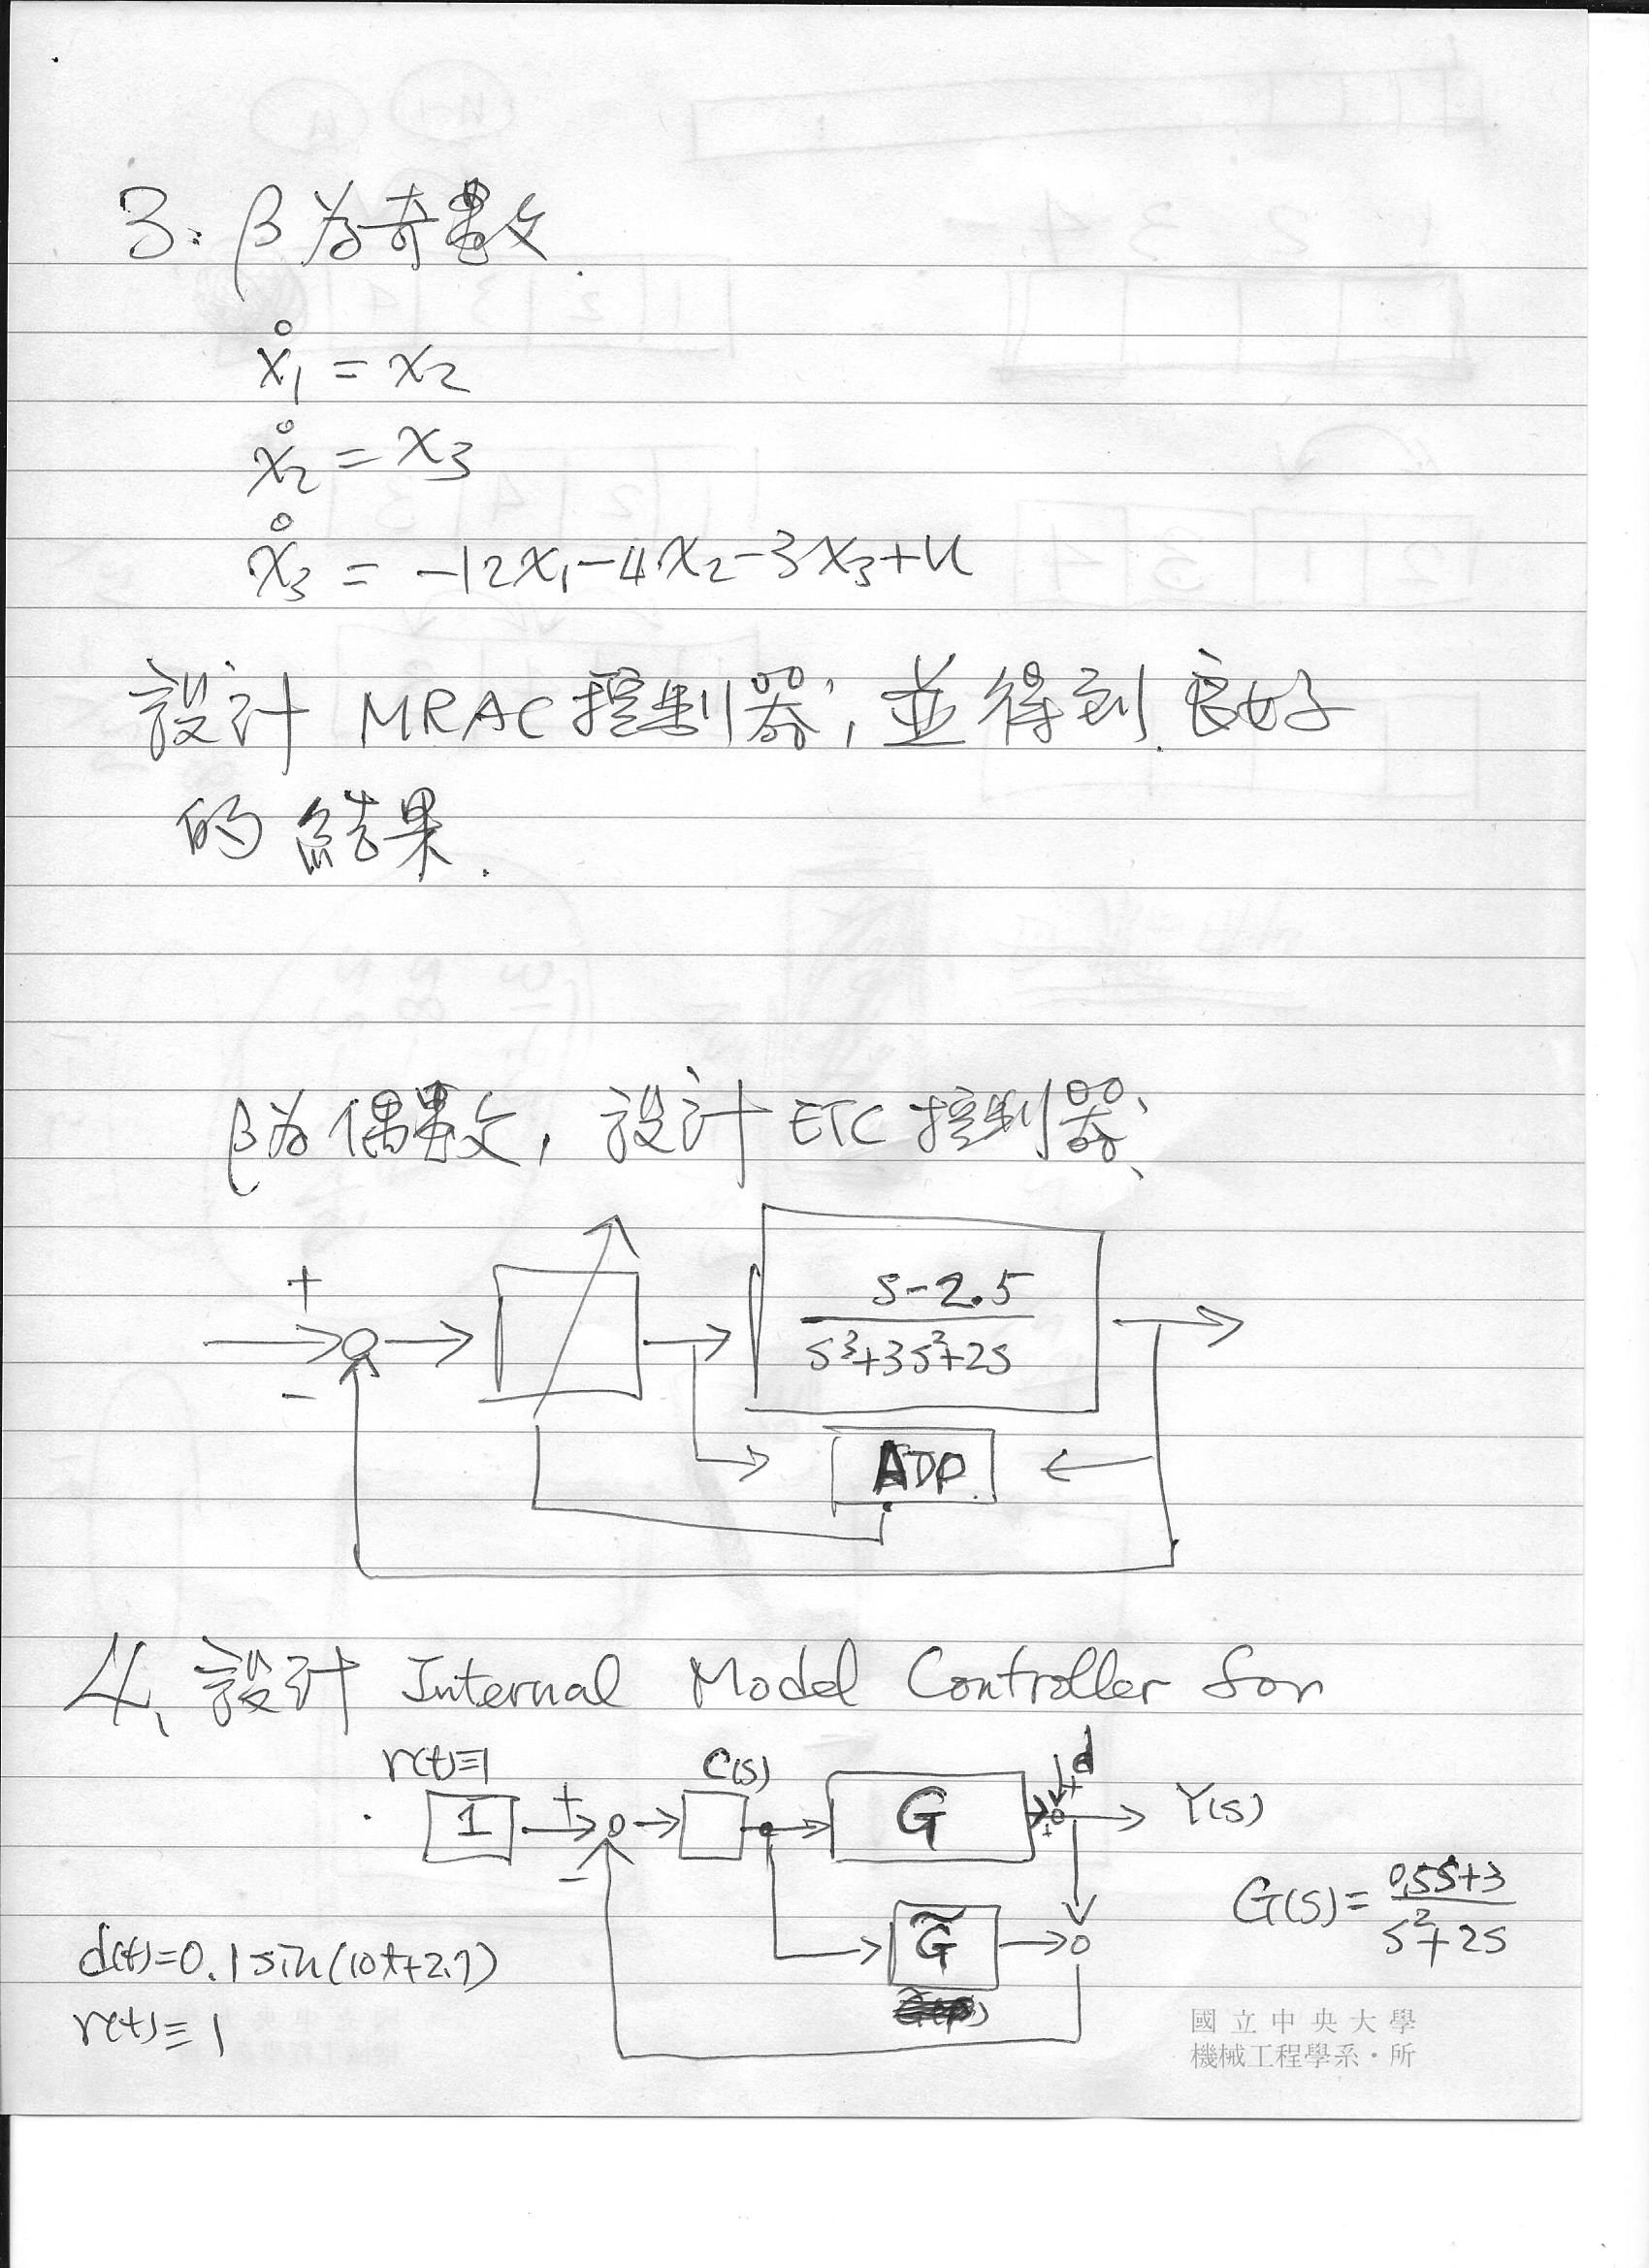 3. β為奇數
ẋ1 = x2
ẋ2 = x3
ẋ3 = -12x1-4x2-3x3+u
設計 MRAC控制器, 並得到良好
的結果.
β為偶數, 設計 ETC 控制器
+
-
s-2.5
s³+3s²+2s
ADP
4. 設計 Internal Model Controller for
r(t)≡1
C(s)
d
1
+
-
G
+
+
Y(s)
G̃
G(s)= 0.5s+3
s²+2s
d(t)=0.1 sin(10t+2.7)
r(t)≡1
國立中央大學
機械工程學系・所